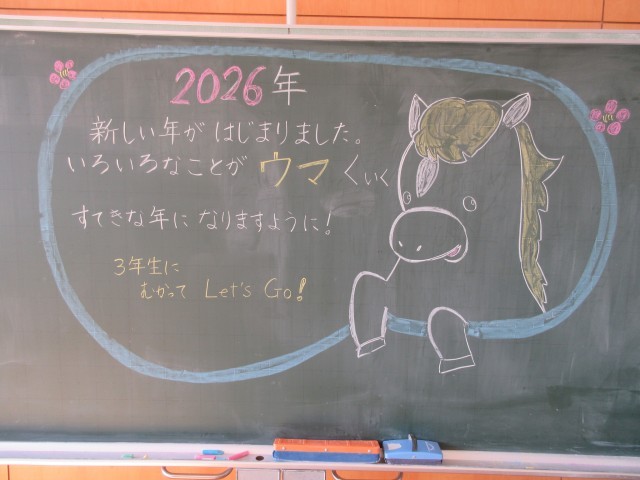 2026年
新しい年が はじまりました。
いろいろなことが ウマくいく
すてきな年に なりますように!
3年生に
むかって Let's Go!